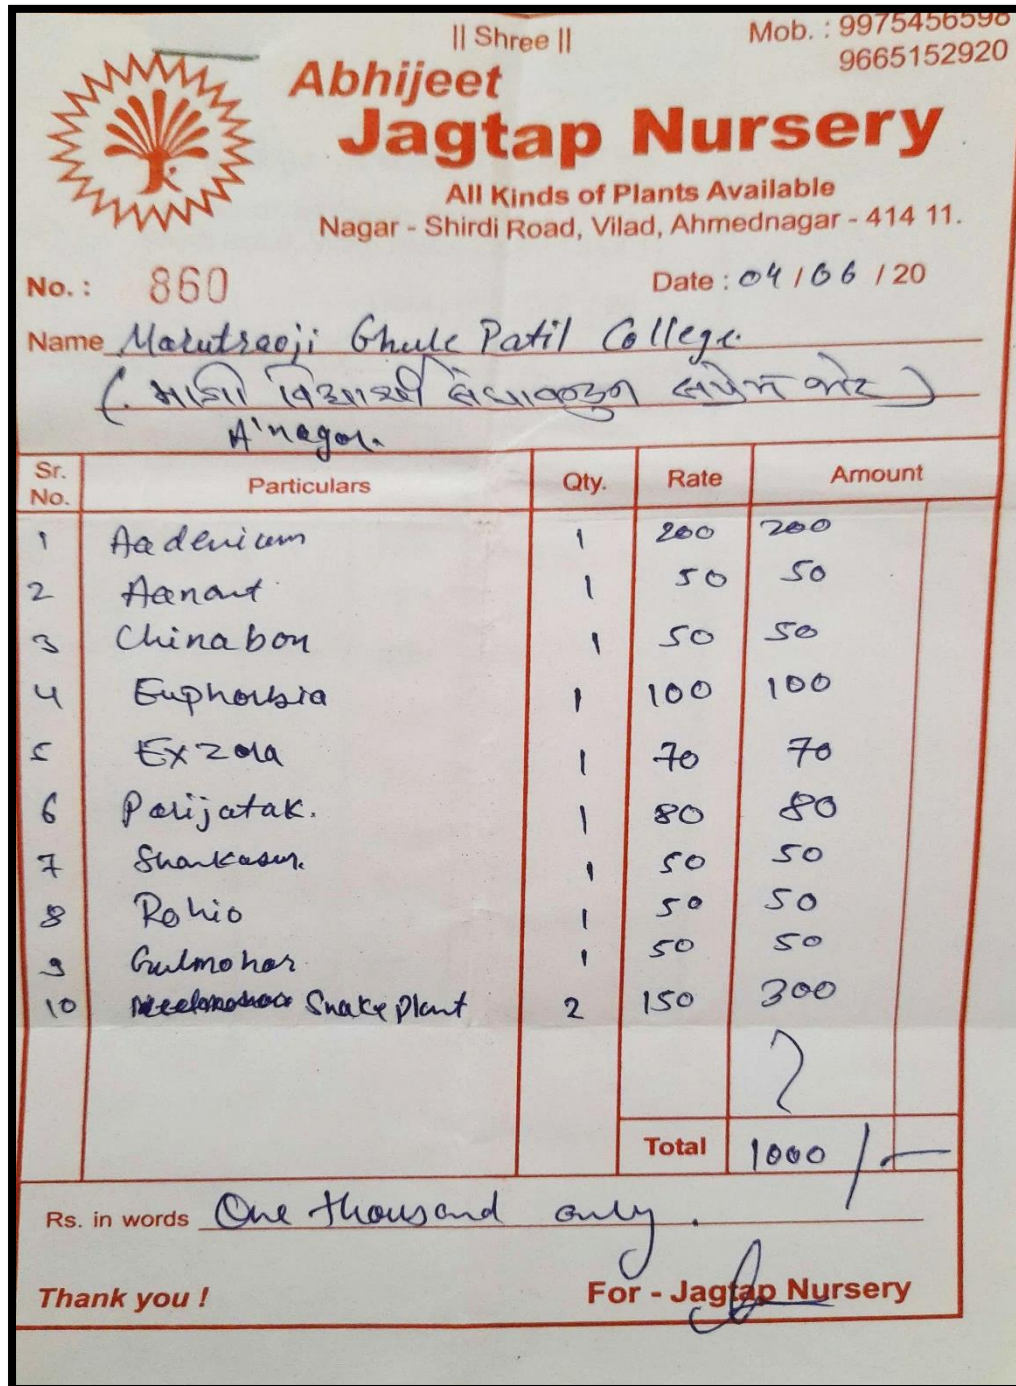 || Shree ||
Mob. : 9975456598
9665152920
Abhijeet
Jagtap Nursery
All Kinds of Plants Available
Nagar - Shirdi Road, Vilad, Ahmednagar - 414 11.
No. : 860 Date : 04 / 06 / 20
Name Marutraoji Ghule Patil College.
( माजी विद्यार्थी संघाकडुन सप्रेम भेट )
A'nagar.
Sr. No. Particulars Qty. Rate Amount
1 Aadenium 1 200 200
2 Aanant 1 50 50
3 Chinabon 1 50 50
4 Euphorbia 1 100 100
5 Exzora 1 70 70
6 Parijatak. 1 80 80
7 Shankasur. 1 50 50
8 Rohio 1 50 50
9 Gulmohar 1 50 50
10 Snake Plant 2 150 300
Total 1000 /-
Rs. in words One thousand only.
Thank you ! For - Jagtap Nursery